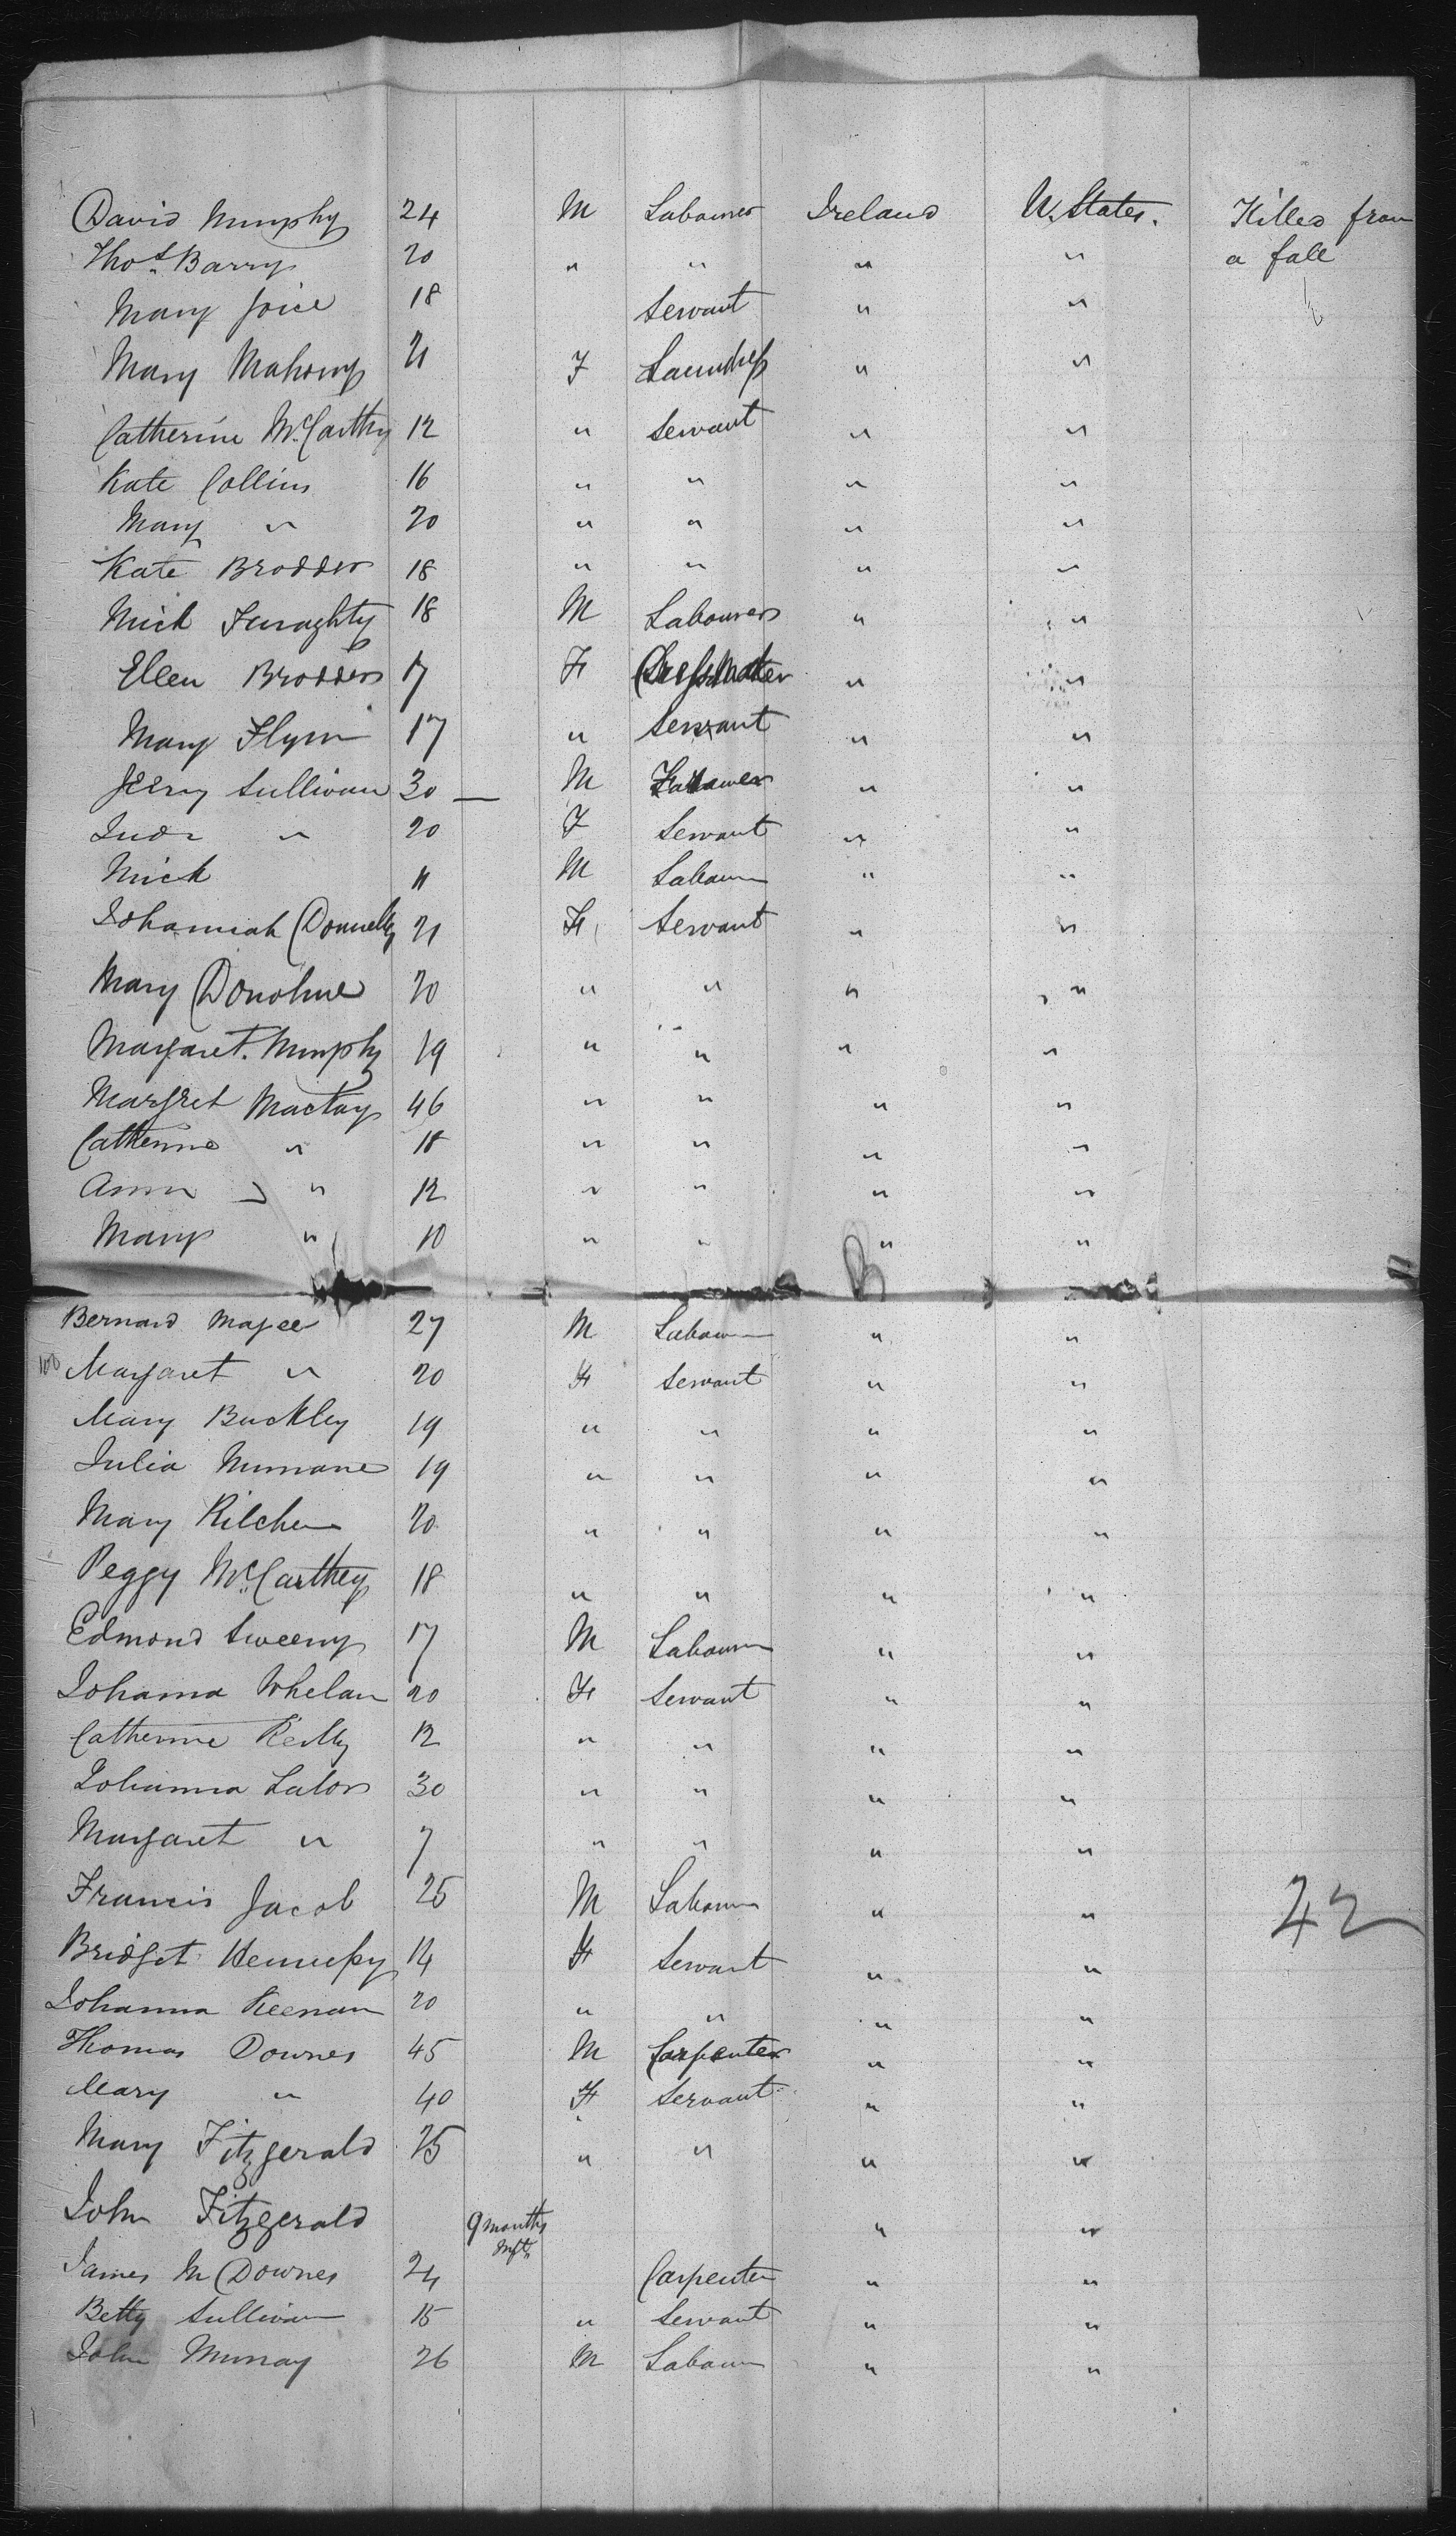 David Murphy 24 M Labourer Ireland U. States. Killed from
Thos. Barry 20 " " " " a fall
Mary Joice 18 Servant " "
Mary Mahony 21 F Laundress " "
Catherine McCarthy 12 " Servant " "
Kate Collins 16 " " " "
Mary " 20 " " " "
Kate Brodder 18 " " " "
Mick Furaghty 18 M Labourer " "
Ellen Brodders 17 F Dressmaker " "
Mary Flynn 17 " Servant " "
Jerry Sullivan 30 — M " "
Judy " 20 F Servant " "
Mick 11 M Labourer " "
Johannah Donnelly 21 F Servant " "
Mary Donohue 20 " " " "
Margaret. Murphy 19 " " " "
Margret Mactay 46 " " " "
Catherine " 18 " " " "
Ann " 12 " " " "
Mary " 10 " " " "
B
Bernard Magee 27 M Labourer " "
100 Margaret " 20 F Servant " "
Mary Buckley 19 " " " "
Julia Murnane 19 " " " "
Mary Kilchen 20 " " " "
Peggy McCarthey 18 " " " "
Edmond Sweeny 17 M Labourer " "
Johanna Whelan 20 F Servant " "
Catherine Reilly 12 " " " "
Johanna Lalor 30 " " " "
Margaret " 7 " " " "
Francis Jacob 25 M Labourer " " 42
Bridget Hennessy 14 F Servant " "
Johanna Keenan 20 " " " "
Thomas Downes 45 M Carpenter " "
Mary " 40 F Servant " "
Mary Fitzgerald 25 " " " "
John Fitzgerald 9 months " "
Inft.
James M Downes 24 Carpenter " "
Betty Sullivan 15 " Servant " "
John Murray 26 M Labourer " "